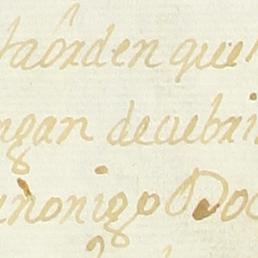 taôrden que
ngan decubri
anonigo Do